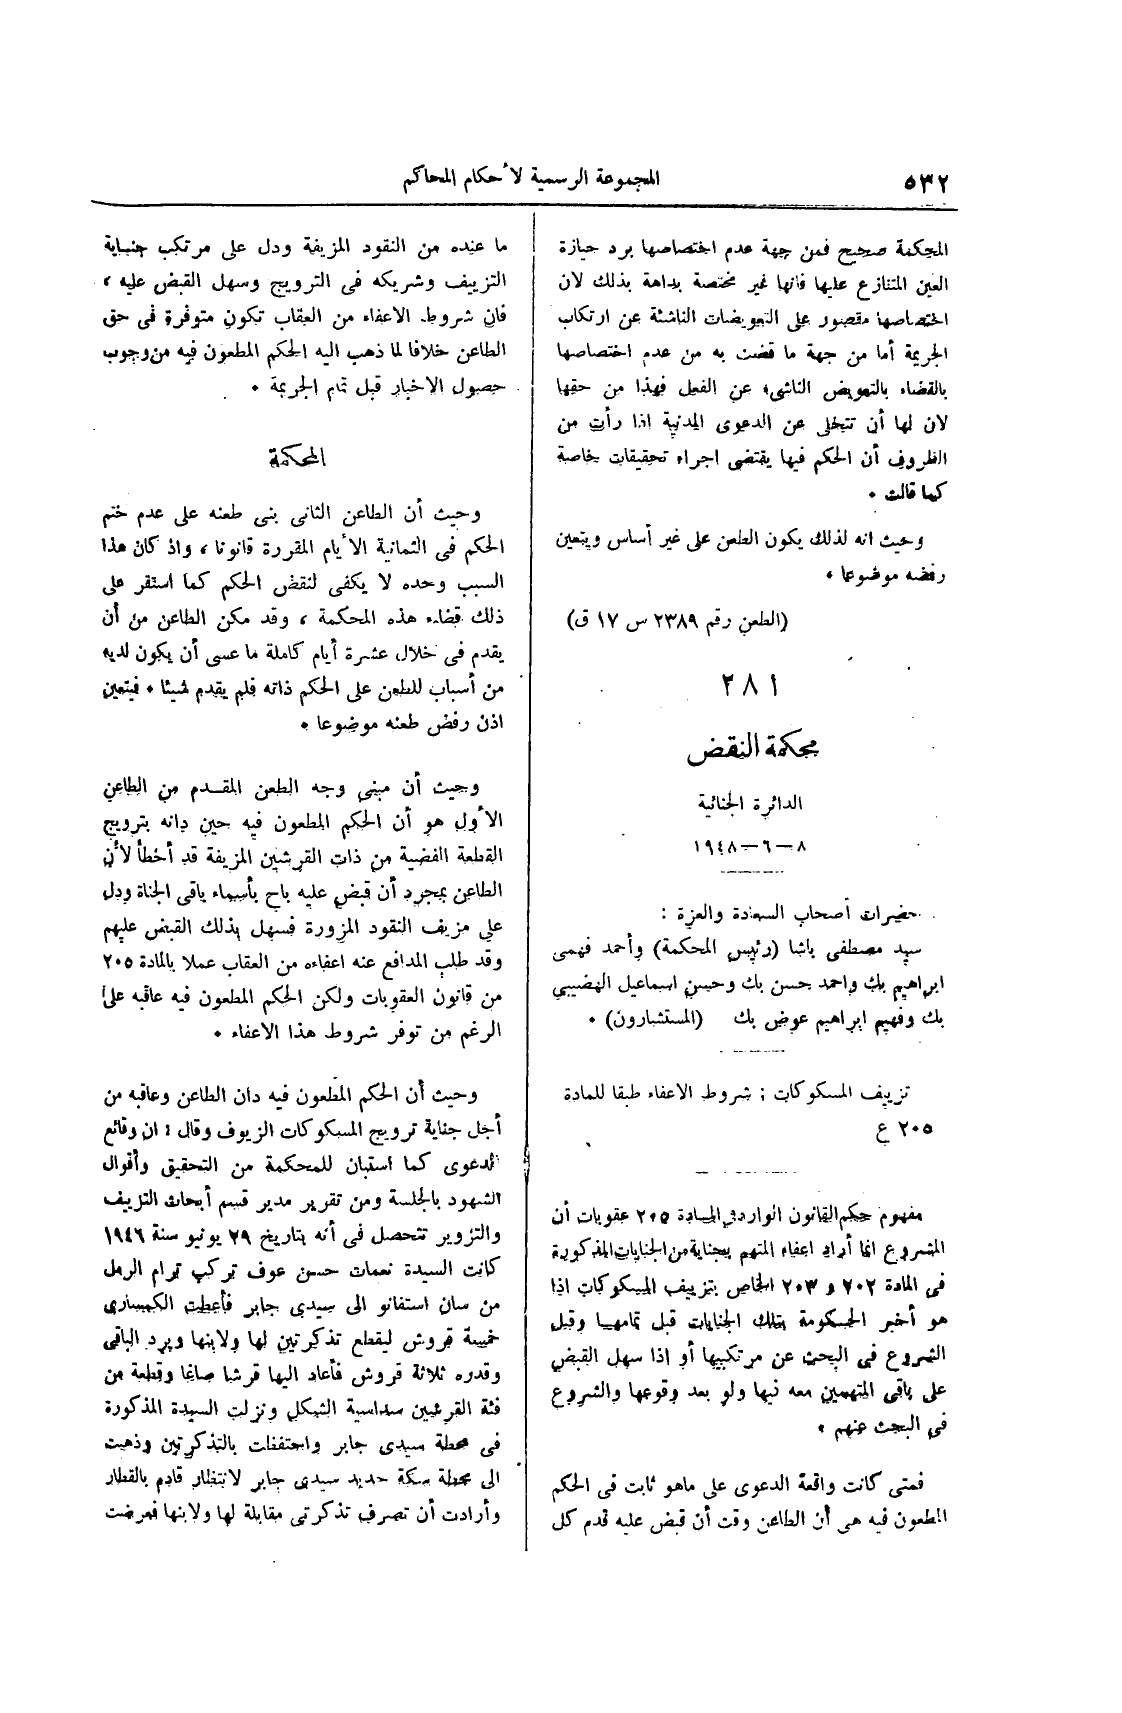 ٥٣٢
المجموعة الرسمية لأحكام المحاكم
المحكمة صحيح فمن جهة عدم اختصاصها برد حيازة
العين المتنازع عليها فانها غير مختصة بداهة بذلك لان
اختصاصها مقصور على التعويضات الناشئة عن ارتكاب
الجريمة أما من جهة ما قضت به من عدم اختصاصها
بالقضاء بالتعويض الناشىء عن الفعل فهذا من حقها
لان لها أن تتخلى عن الدعوى المدنية اذا رأت من
الظروف أن الحكم فيها يقتضى اجراء تحقيقات خاصة
كما قالت ٠
وحيث انه لذلك يكون الطعن على غير أساس ويتعين
رفضه موضوعا ٠
(الطعن رقم ٢٣٨٩ س ١٧ ق)
٢٨١
محكمة النقض
الدائرة الجنائية
٨ – ٦ – ١٩٤٨
حضرات أصحاب السعادة والعزة :
سيد مصطفى باشا (رئيس المحكمة) وأحمد فهمى
ابراهيم بك واحمد حسن بك وحسن اسماعيل الهضيبي
بك وفهيم ابراهيم عوض بك (المستشارون) ٠
تزييف المسكوكات ; شروط الاعفاء طبقا للمادة
٢٠٥ ع
مفهوم حكم القانون الوارد فى المادة ٢٠٥ عقوبات أن
المشروع انما أراد اعفاء المتهم بجناية من الجنايات المذكورة
فى المادة ٢٠٢ و ٢٠٣ الخاص بتزييف المسكوكات اذا
هو أخبر الحكومة بتلك الجنايات قبل تمامها وقبل
الشروع فى البحث عن مرتكبيها أو اذا سهل القبض
على باقى المتهمين معه فيها ولو بعد وقوعها والشروع
فى البحث عنهم ٠
فمتى كانت واقعة الدعوى على ماهو ثابت فى الحكم
المطعون فيه هى أن الطاعن وقت أن قبض عليه قدم كل
ما عنده من النقود المزيفة ودل على مرتكب جناية
التزييف وشريكه فى الترويج وسهل القبض عليه ،
فان شروط الاعفاء من العقاب تكون متوفرة فى حق
الطاعن خلافا لما ذهب اليه الحكم المطعون فيه من وجوب
حصول الاخبار قبل تمام الجريمة ٠
المحكمة
وحيث أن الطاعن الثانى بنى طعنه على عدم ختم
الحكم فى الثمانية الأيام المقررة قانونا ، واذ كان هذا
السبب وحده لا يكفى لنقض الحكم كما استقر على
ذلك قضاء هذه المحكمة ، وقد مكن الطاعن من أن
يقدم فى خلال عشرة أيام كاملة ما عسى أن يكون لديه
من أسباب للطعن على الحكم ذاته فلم يقدم شيئا ٠ فيتعين
اذن رفض طعنه موضوعا ٠
وحيث أن مبنى وجه الطعن المقدم من الطاعن
الأول هو أن الحكم المطعون فيه حين دانه بترويج
القطعة الفضية من ذات القرشين المزيفة قد أخطأ لأن
الطاعن بمجرد أن قبض عليه باح بأسماء باقى الجناة ودل
على مزيف النقود المزورة فسهل بذلك القبض عليهم
وقد طلب المدافع عنه اعفاءه من العقاب عملا بالمادة ٢٠٥
من قانون العقوبات ولكن الحكم المطعون فيه عاقبه على
الرغم من توفر شروط هذا الاعفاء ٠
وحيث أن الحكم المطعون فيه دان الطاعن وعاقبه من
أجل جناية ترويج المسكوكات الزيوف وقال : ان وقائع
الدعوى كما استبان للمحكمة من التحقيق وأقوال
الشهود بالجلسة ومن تقرير مدير قسم أبحاث التزييف
والتزوير تتحصل فى أنه بتاريخ ٢٩ يونيو سنة ١٩٤٦
كانت السيدة نعمات حسن عوف تركب ترام الرمل
من سان استفانو الى سيدى جابر فأعطت الكمسارى
خمسة قروش ليقطع تذكرتين لها ولابنها ويرد الباقى
وقدره ثلاثة قروش فأعاد اليها قرشا صاغا وقطعة من
فئة القرشين سداسية الشكل ونزلت السيدة المذكورة
فى محطة سيدى جابر واحتفظت بالتذكرتين وذهبت
الى محطة سكة حديد سيدى جابر لانتظار قادم بالقطار
وأرادت أن تصرف تذكرتى مقابلة لها ولابنها فعرضت